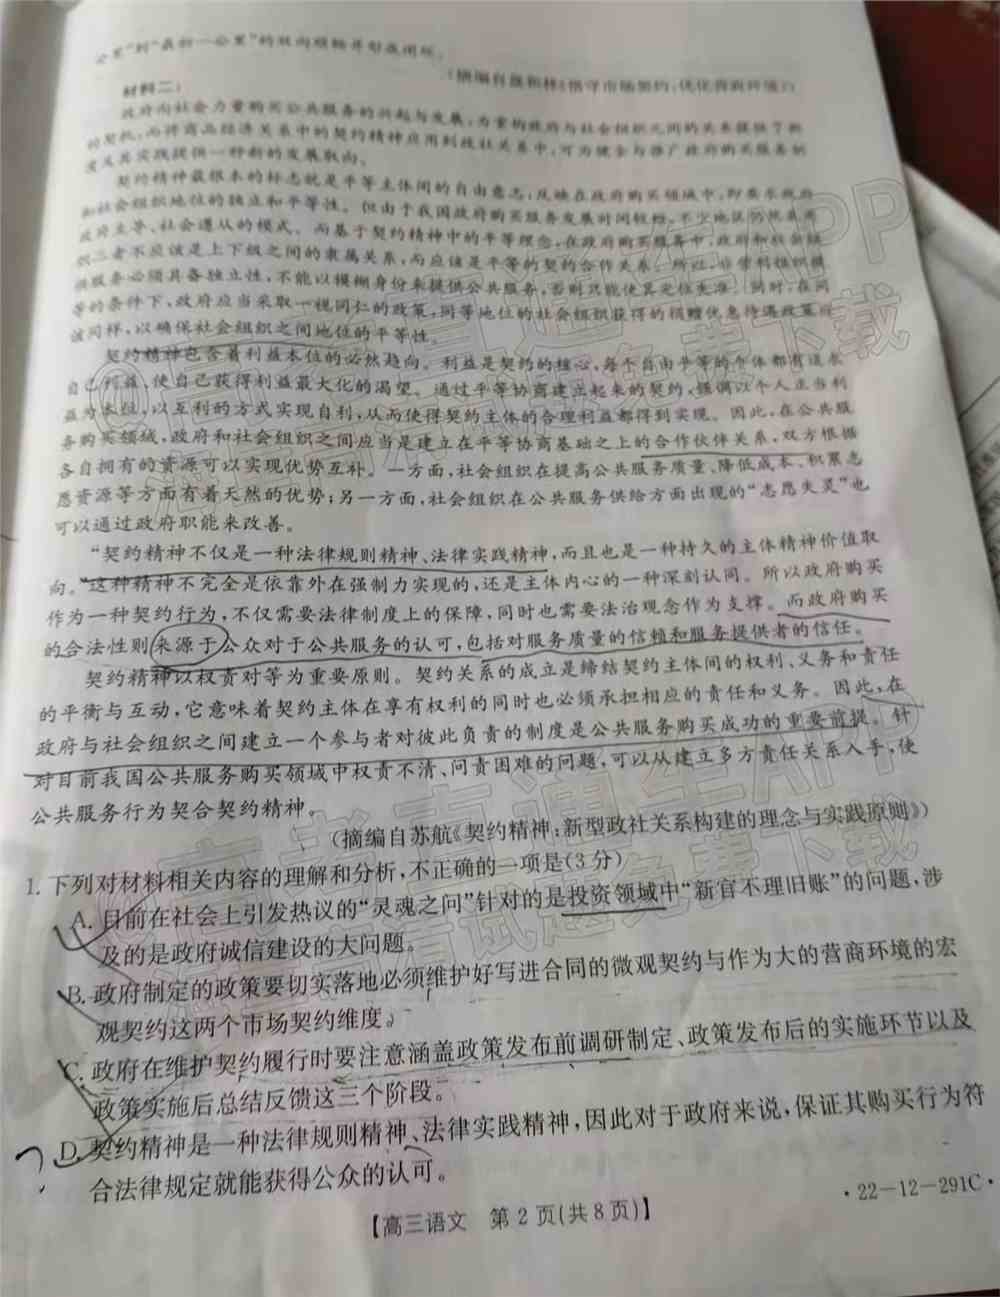 公里"到"最后一公里"的双向顺畅并形成闭环。
材料二:
政府向社会力量购买公共服务的兴起与发展,为重构政府与社会组织之间的关系提供了新
的契机,而将商品经济关系中的契约精神应用到政社关系中,可为健全与推广政府购买服务制
度及其实践提供一种新的发展取向。
契约精神最根本的标志就是平等主体间的自由意志,反映在政府购买领域中,即要求政府
和社会组织地位的独立和平等性。但由于我国政府购买服务发展时间较短,不少地区仍然具有
政府主导、社会遵从的模式。而基于契约精神中的平等理念,在政府购买服务中,政府和社会组
织二者不应该是上下级之间的隶属关系,而应该是平等的契约合作关系。所以,非营利组织提
供服务必须具备独立性,不能以模糊身份来提供公共服务,否则只能使其定位失准。同时,在同
等的条件下,政府应当采取一视同仁的政策,同等地位的社会组织获得的捐赠优惠待遇政策应
该同样,以确保社会组织之间地位的平等性。
契约精神包含着利益本位的必然趋向。利益是契约的核心,每个自由平等的个体都有追求
自己利益,使自己获得利益最大化的渴望。通过平等协商建立起来的契约,强调以个人正当利
益为本位,以互利的方式实现自利,从而使得契约主体的合理利益都得到实现。因此,在公共服
务购买领域,政府和社会组织之间应当是建立在平等协商基础之上的合作伙伴关系,双方根据
各自拥有的资源可以实现优势互补。一方面,社会组织在提高公共服务质量、降低成本、积累志
愿资源等方面有着天然的优势;另一方面,社会组织在公共服务供给方面出现的"志愿失灵"也
可以通过政府职能来改善。
"契约精神不仅是一种法律规则精神、法律实践精神,而且也是一种持久的主体精神价值取
向。"这种精神不完全是依靠外在强制力实现的,还是主体内心的一种深刻认同。所以政府购买
作为一种契约行为,不仅需要法律制度上的保障,同时也需要法治观念作为支撑。而政府购买
的合法性则来源于公众对于公共服务的认可,包括对服务质量的信赖和服务提供者的信任。
契约精神以权责对等为重要原则。契约关系的成立是缔结契约主体间的权利、义务和责任
的平衡与互动,它意味着契约主体在享有权利的同时也必须承担相应的责任和义务。因此,在
政府与社会组织之间建立一个参与者对彼此负责的制度是公共服务购买成功的重要前提。针
对目前我国公共服务购买领域中权责不清、问责困难的问题,可以从建立多方责任关系入手,使
公共服务行为契合契约精神。
(摘编自苏航《契约精神:新型政社关系构建的理念与实践原则》)
1. 下列对材料相关内容的理解和分析,不正确的一项是(3分)
A. 目前在社会上引发热议的"灵魂之问"针对的是投资领域中"新官不理旧账"的问题,涉
及的是政府诚信建设的大问题。
B. 政府制定的政策要切实落地必须维护好写进合同的微观契约与作为大的营商环境的宏
观契约这两个市场契约维度。
C. 政府在维护契约履行时要注意涵盖政策发布前调研制定、政策发布后的实施环节以及
政策实施后总结反馈这三个阶段。
D. 契约精神是一种法律规则精神、法律实践精神,因此对于政府来说,保证其购买行为符
合法律规定就能获得公众的认可。
【高三语文 第2页(共8页)】
·22-12-291C·